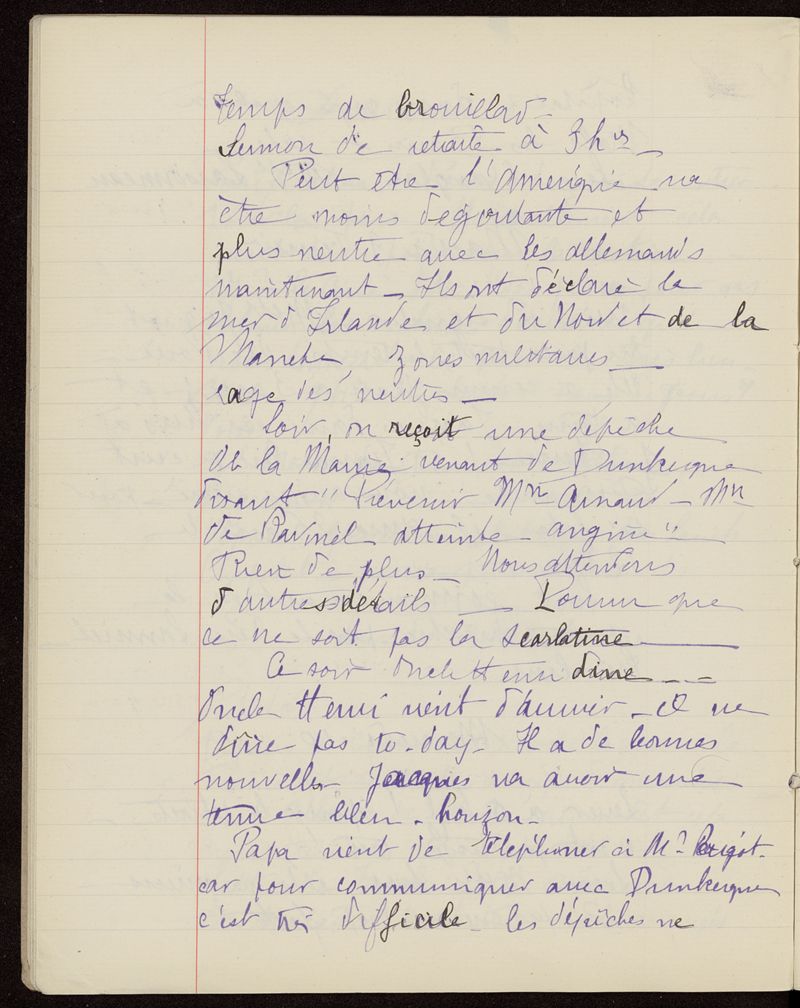 Temps de brouillard -
Sermon de retraite à 3 hrs -
Peut être l'Amérique va
être moins dégoutante et
plus neutre avec les allemands
maintenant - Ils ont déclaré la
mer d'Irlande et du Nord et de la
Manche, zones militaires -
rage des neutres -
Soir, on reçoit une dépêche
de la Mairie venant de Dunkerque
disant "Prévenir Mme Arnaud - Mme
de Ravinel atteinte angine"
Rien de plus - Nous attendons
d'autres détails - Pourvu que
ce ne soit pas la scarlatine -
Ce soir Oncle Henri dine - - -
Oncle Henri vient d'arriver - et ne
dîne pas to-day - Il a de bonnes
nouvelles Jacques va avoir une
tenue bleu - horizon -
Papa vient de téléphoner à Mr
car pour communiquer avec Dunkerque
c'est très difficile - les dépêches ne